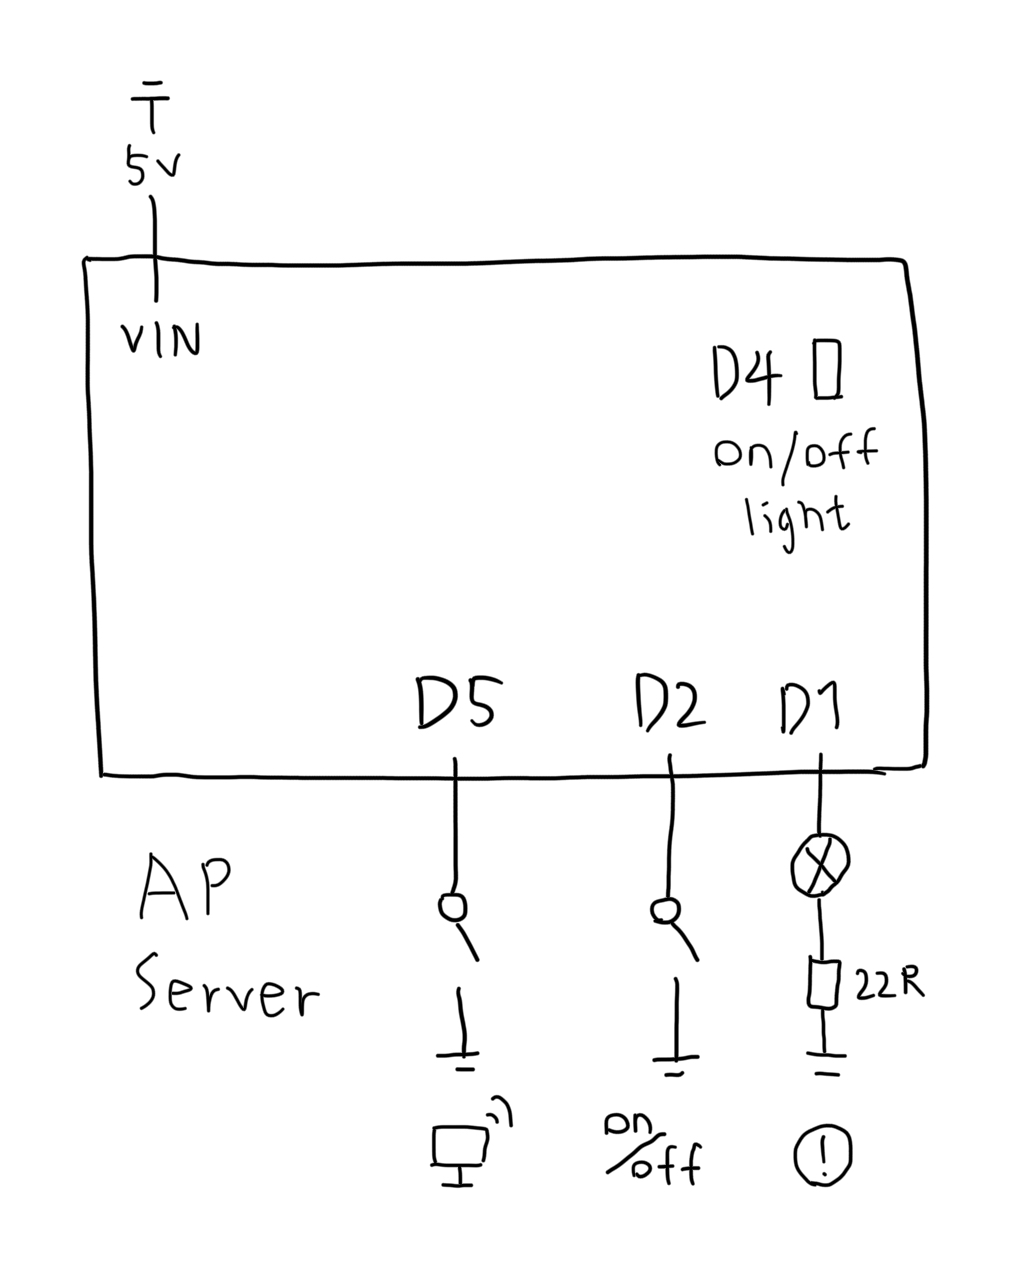 5V
VIN
D4
on/off
light
D5
D2
D1
AP
Server
22R
on
/off
!